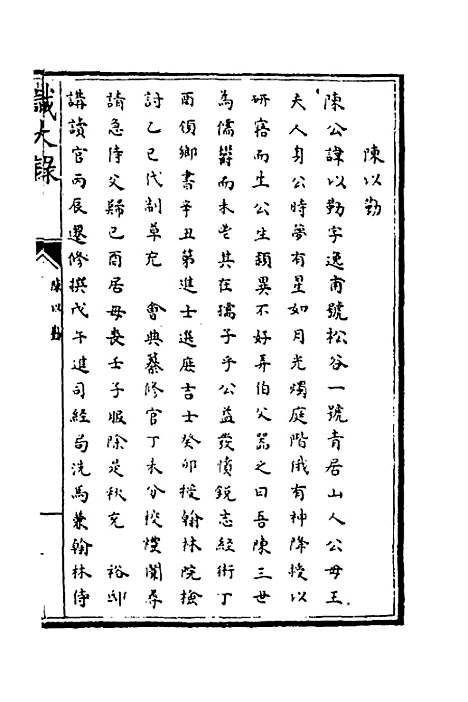 陳以勤
陳公諱以勤字逸甫號松谷一號青居山人公母王
夫人身公時夢有星如月光燭庭階俄有神降授以
研寤而生公生頴異不好弄伯父器之曰吾陳三世
為儒欝而未㞢其在孺子乎公益發憤銳志經術丁
酉領鄉書辛丑第進士選庶吉士癸卯授翰林院檢
討乙巳代制草充　會典纂修官丁未分校禮闈尋
請急侍父歸己酉居母喪壬子服除是秋充　裕邸
講讀官丙辰遷修撰戊午進司經局洗馬兼翰林侍
識大錄
陳以勤